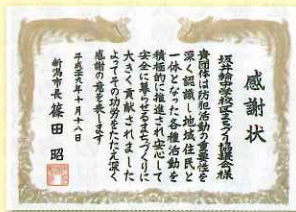 感謝状
坂井輪中学校区まちづくり協議会様
貴団体は防犯活動の重要性を
深く認識し地域住民と
一体となった各種活動を
積極的に推進され安心して
安全に暮らせるまちづくりに
大きく貢献されました
よってその功労をたたえ深く
感謝の意を表します
平成二十六年十月十八日
新潟市長 篠田 昭